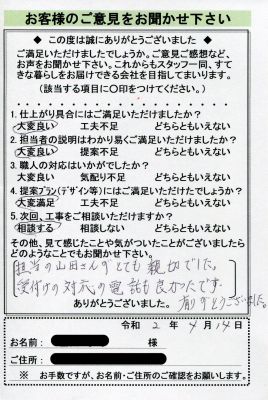 お客様のご意見をお聞かせ下さい
◆ この度は誠にありがとうございました ◆
ご満足いただけましたでしょうか。ご意見ご感想など、
お声をお聞かせ下さい。これからもスタッフ一同、すて
きな暮らしをお届けできる会社を目指してまいります。
(該当する項目に○印をつけてください。)
1. 仕上がり具合にはご満足いただけましたか?
大変良い 工夫不足 どちらともいえない
2. 担当者の説明はわかり易くご満足いただけましたか?
大変良い 提案不足 どちらともいえない
3. 職人の対応はいかがでしたか?
大変良い 気配り不足 どちらともいえない
4. 提案プラン(デザイン等)にはご満足いただけたでしょうか?
大変満足 工夫不足 どちらともいえない
5. 次回、工事をご相談いただけますか?
相談する 相談しない どちらともいえない
その他、見て感じたことや気がついたことがございましたら
どのようなことでもお聞かせ下さい。
担当の山田さんがとても親切でした。
受付けの対応の電話も良かったです。
ありがとうございました。 有りがとうございました。
令和 2年 4月 14日
お名前: 様
ご住所:
※ お手数ですが、お名前・ご住所のご確認をお願いします。